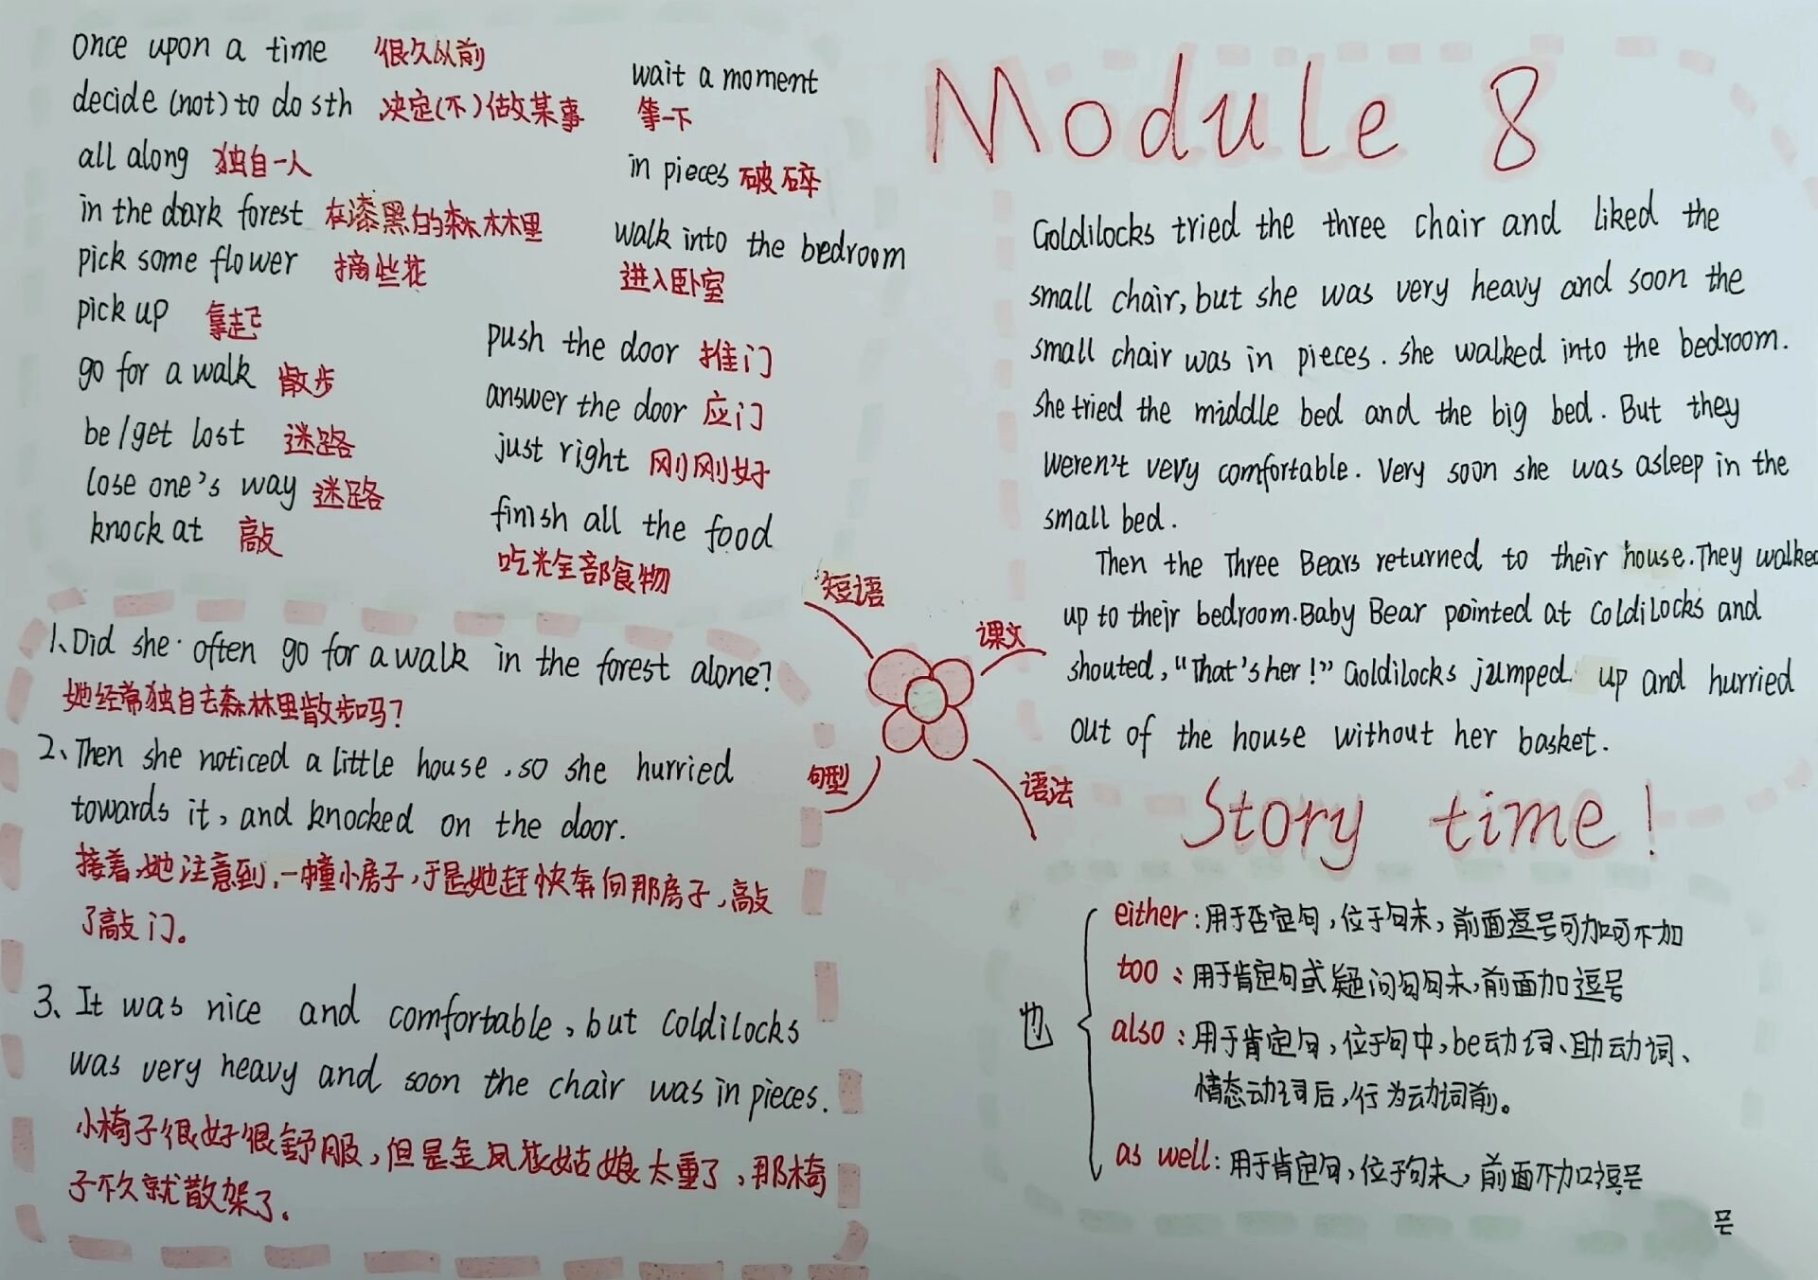 Module 8
once upon a time 很久以前
decide (not) to do sth 决定(不)做某事
all along 独自一人
in the dark forest 在漆黑的森林里
pick some flower 摘些花
pick up 拿起
go for a walk 散步
be/get lost 迷路
lose one's way 迷路
knock at 敲
wait a moment
等一下
in pieces 破碎
walk into the bedroom
进入卧室
push the door 推门
answer the door 应门
just right 刚刚好
finish all the food
吃光全部食物
短语
课文
句型
语法
Goldilocks tried the three chair and liked the
small chair, but she was very heavy and soon the
small chair was in pieces. She walked into the bedroom.
She tried the middle bed and the big bed. But they
weren't very comfortable. Very soon she was asleep in the
small bed.
Then the Three Bears returned to their house. They walked
up to their bedroom. Baby Bear pointed at Goldilocks and
shouted, "That's her!" Goldilocks jumped. up and hurried
out of the house without her basket.
Story time!
1、Did she often go for a walk in the forest alone?
她经常独自去森林里散步吗?
2、Then she noticed a little house, so she hurried
towards it, and knocked on the door.
接着,她注意到,一幢小房子,于是她赶快奔向那房子,敲
了敲门。
3、It was nice and comfortable, but Goldilocks
was very heavy and soon the chair was in pieces.
小椅子很好很舒服,但是金凤花姑娘太重了,那椅
子不久就散架了.
也
either:用于否定句,位于句末,前面逗号可加可不加
too:用于肯定句或疑问句句末,前面加逗号
also:用于肯定句,位于句中,be动词、助动词、
情态动词后,行为动词前。
as well:用于肯定句,位于句末,前面不加逗号